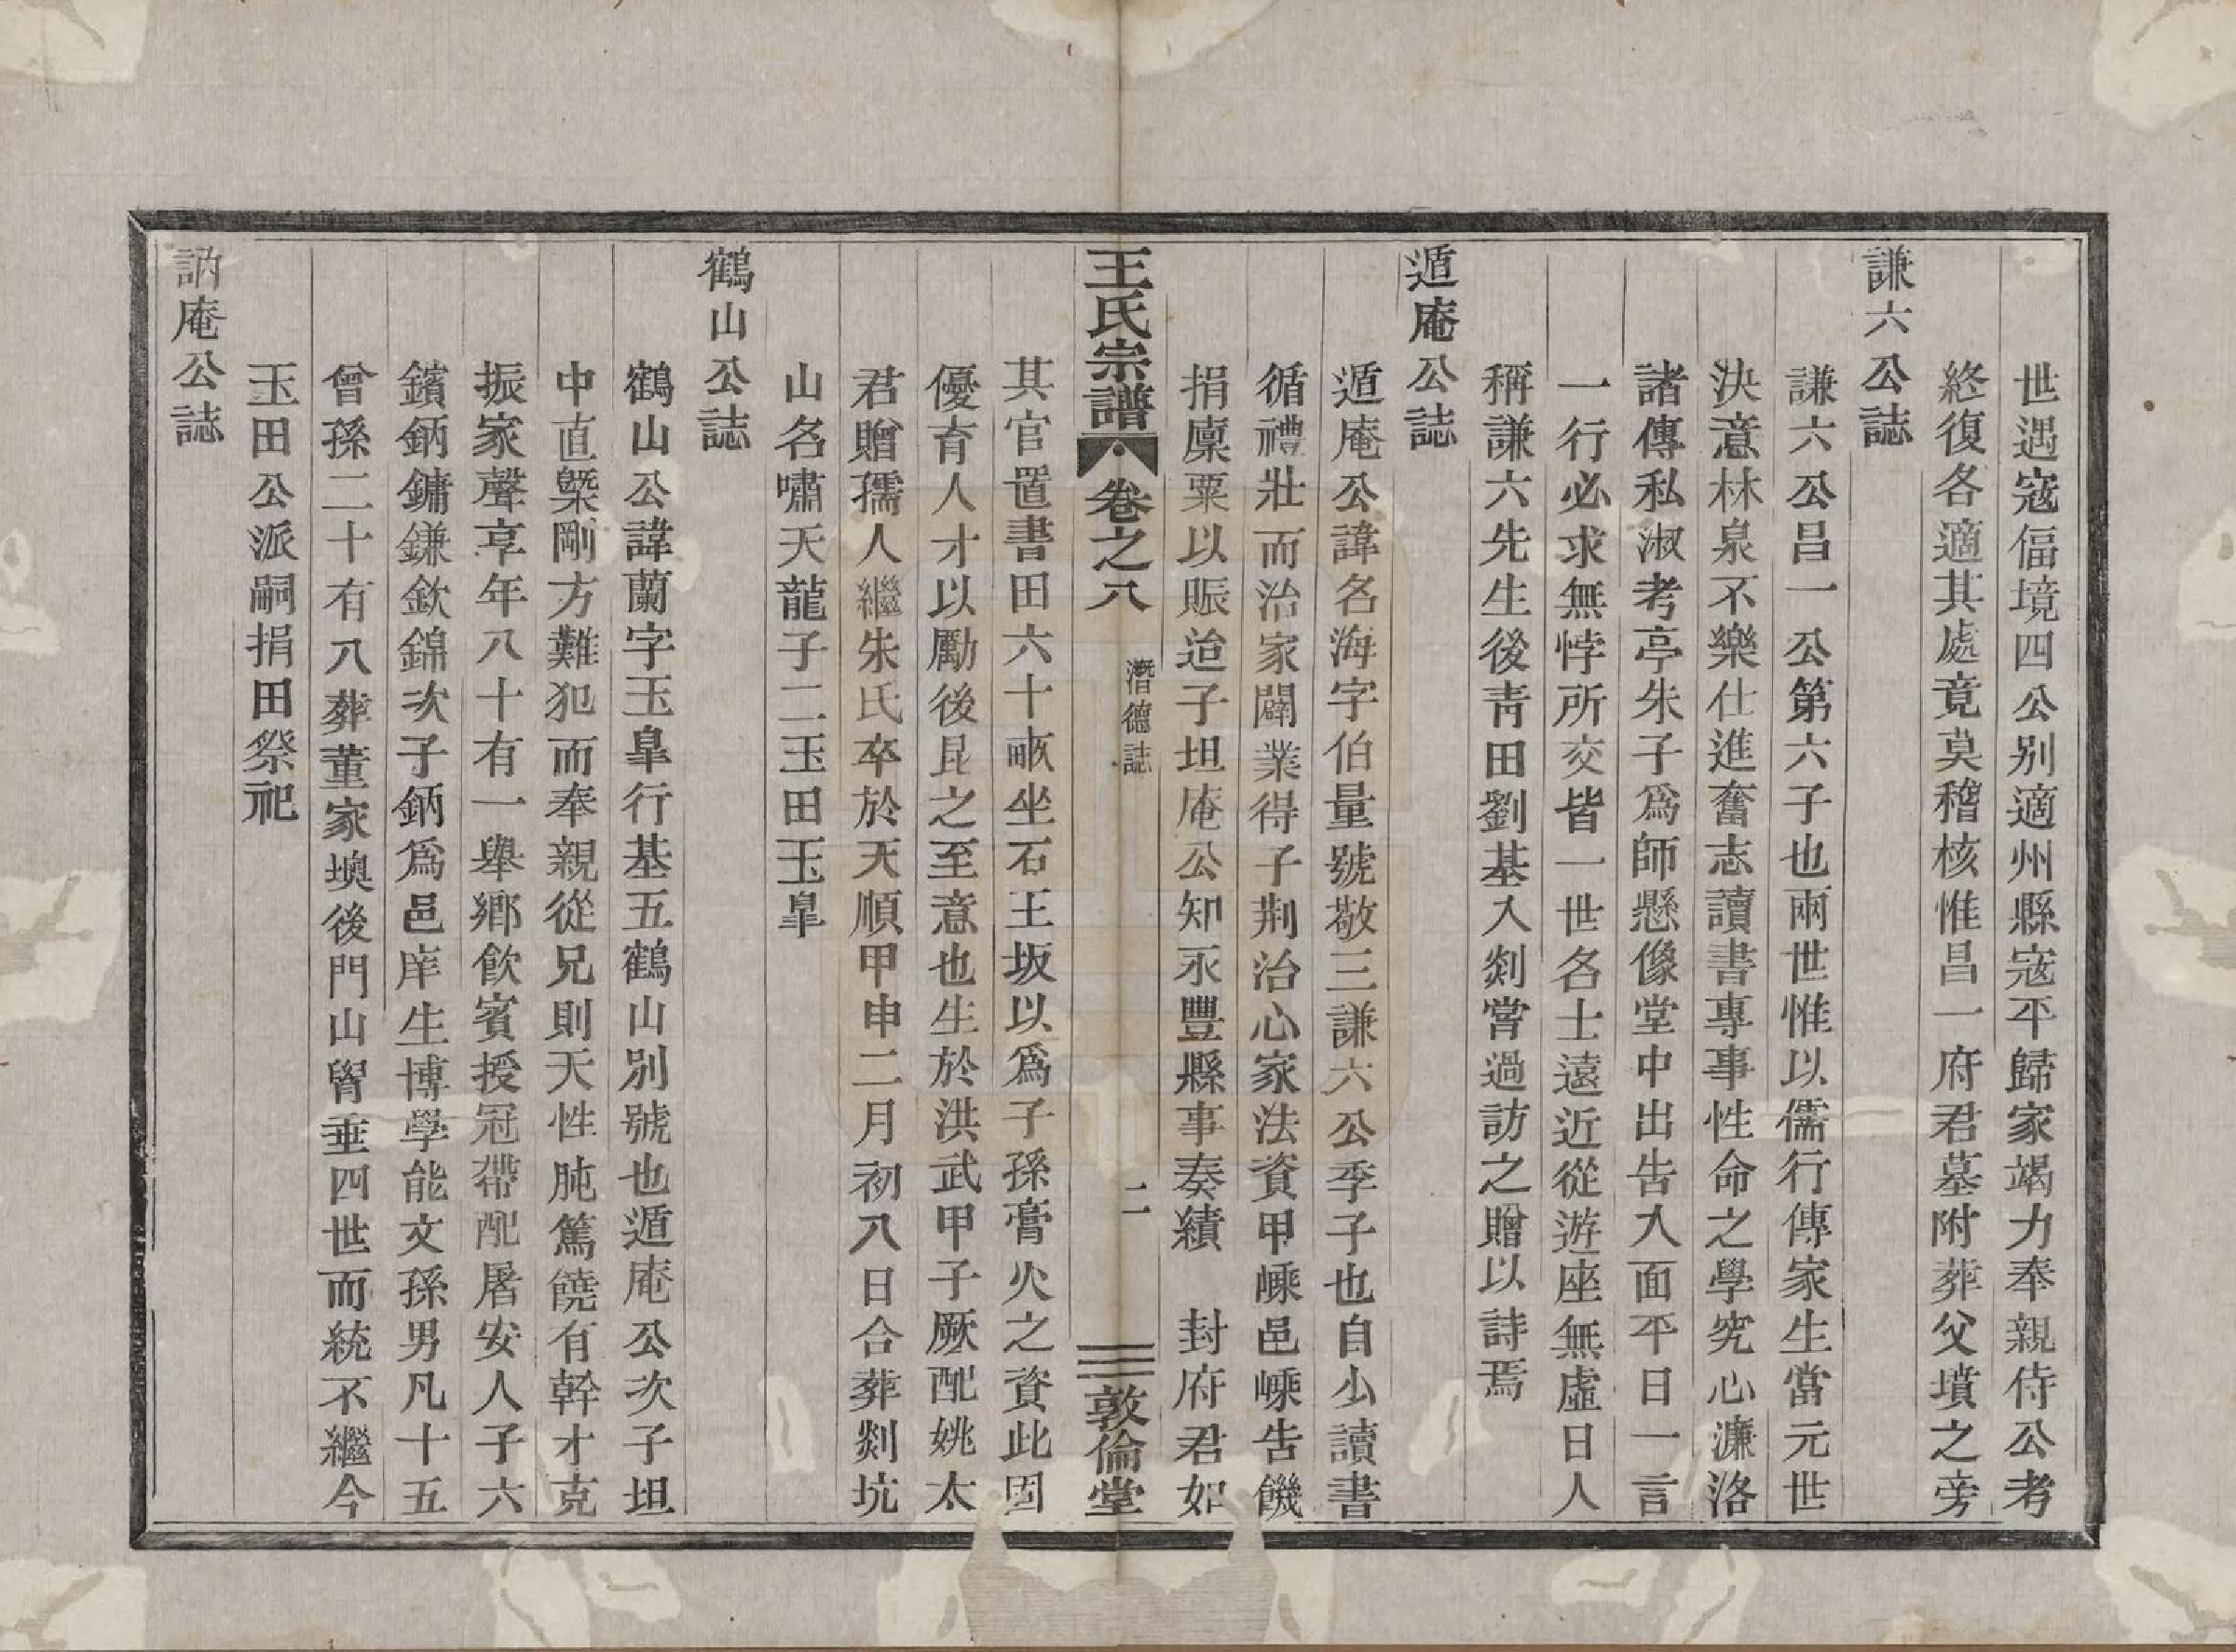 世遇寇偪境四公別適州縣寇平歸家竭力奉親侍公考
終復各適其處竟莫稽核惟昌一府君墓附葬父墳之旁
謙六公誌
謙六公昌一公第六子也兩世惟以儒行傳家生當元世
決意林泉不樂仕進奮志讀書專事性命之學究心濂洛
諸傳私淑考亭朱子為師懸像堂中出告入面平日一言
一行必求無悖所交皆一世各士遠近從遊座無虛日人
稱謙六先生後青田劉基入剡嘗過訪之贈以詩焉
遁庵公誌
遁庵公諱名海字伯量號敬三謙六公季子也自少讀書
循禮壯而治家闢業得子荆治心家法資甲嵊邑嵊告饑
捐廩粟以賑迨子坦庵公知永豐縣事奏績　封府君如
王氏宗譜　卷之八　潛德誌　二　敦倫堂
其官置書田六十畝坐石王坂以為子孫膏火之資此固
優育人才以勵後昆之至意也生於洪武甲子厥配姚太
君贈孺人繼朱氏卒於天順甲申二月初八日合葬剡坑
山名嘯天龍子二玉田玉皐
鶴山公誌
鶴山公諱蘭字玉皐行基五鶴山別號也遁庵公次子坦
中直槩剛方難犯而奉親從兄則天性肫篤饒有幹才克
振家聲享年八十有一舉鄉飲賓授冠帶配屠安人子六
鑌鈵鏞鎌欽錦次子鈵為邑庠生博學能文孫男凡十五
曾孫二十有八葬董家墺後門山胷垂四世而統不繼今
玉田公派嗣捐田祭祀
訥庵公誌